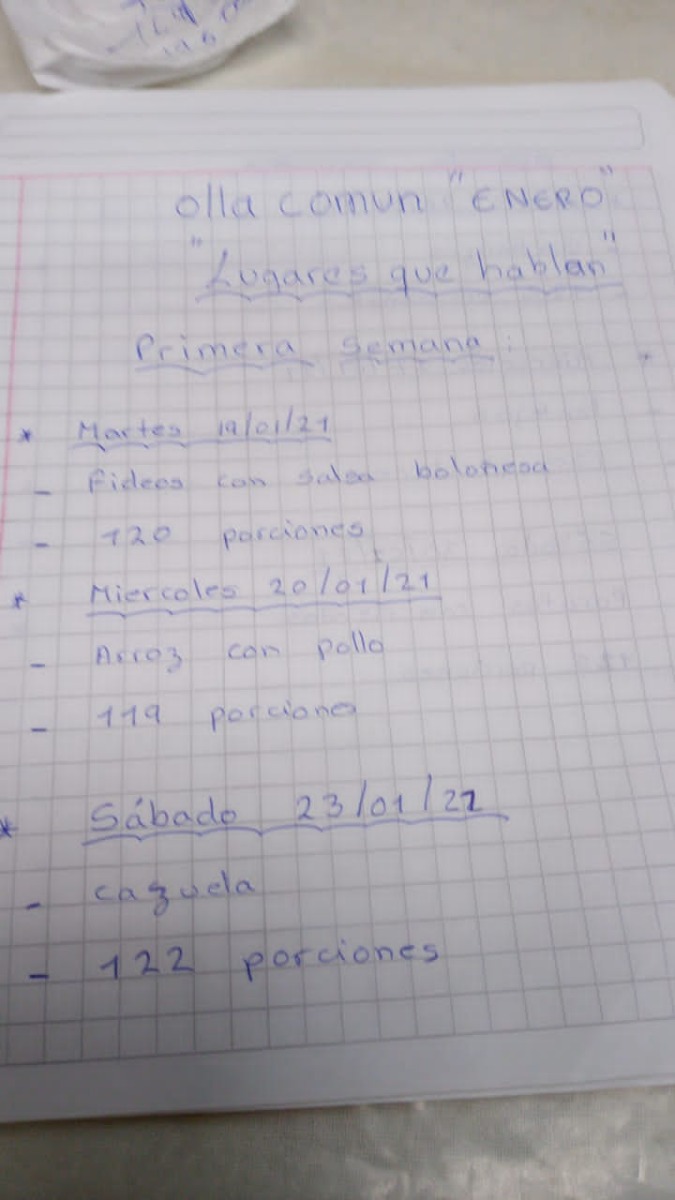 olla comun "ENERO"
"Lugares que hablan"
Primera semana:
* Martes 19/01/21
- fideos con salsa boloñesa
- 120 porciones
* Miercoles 20/01/21
- Arroz con pollo
- 119 porciones
* Sábado 23/01/21
- cazuela
- 122 porciones